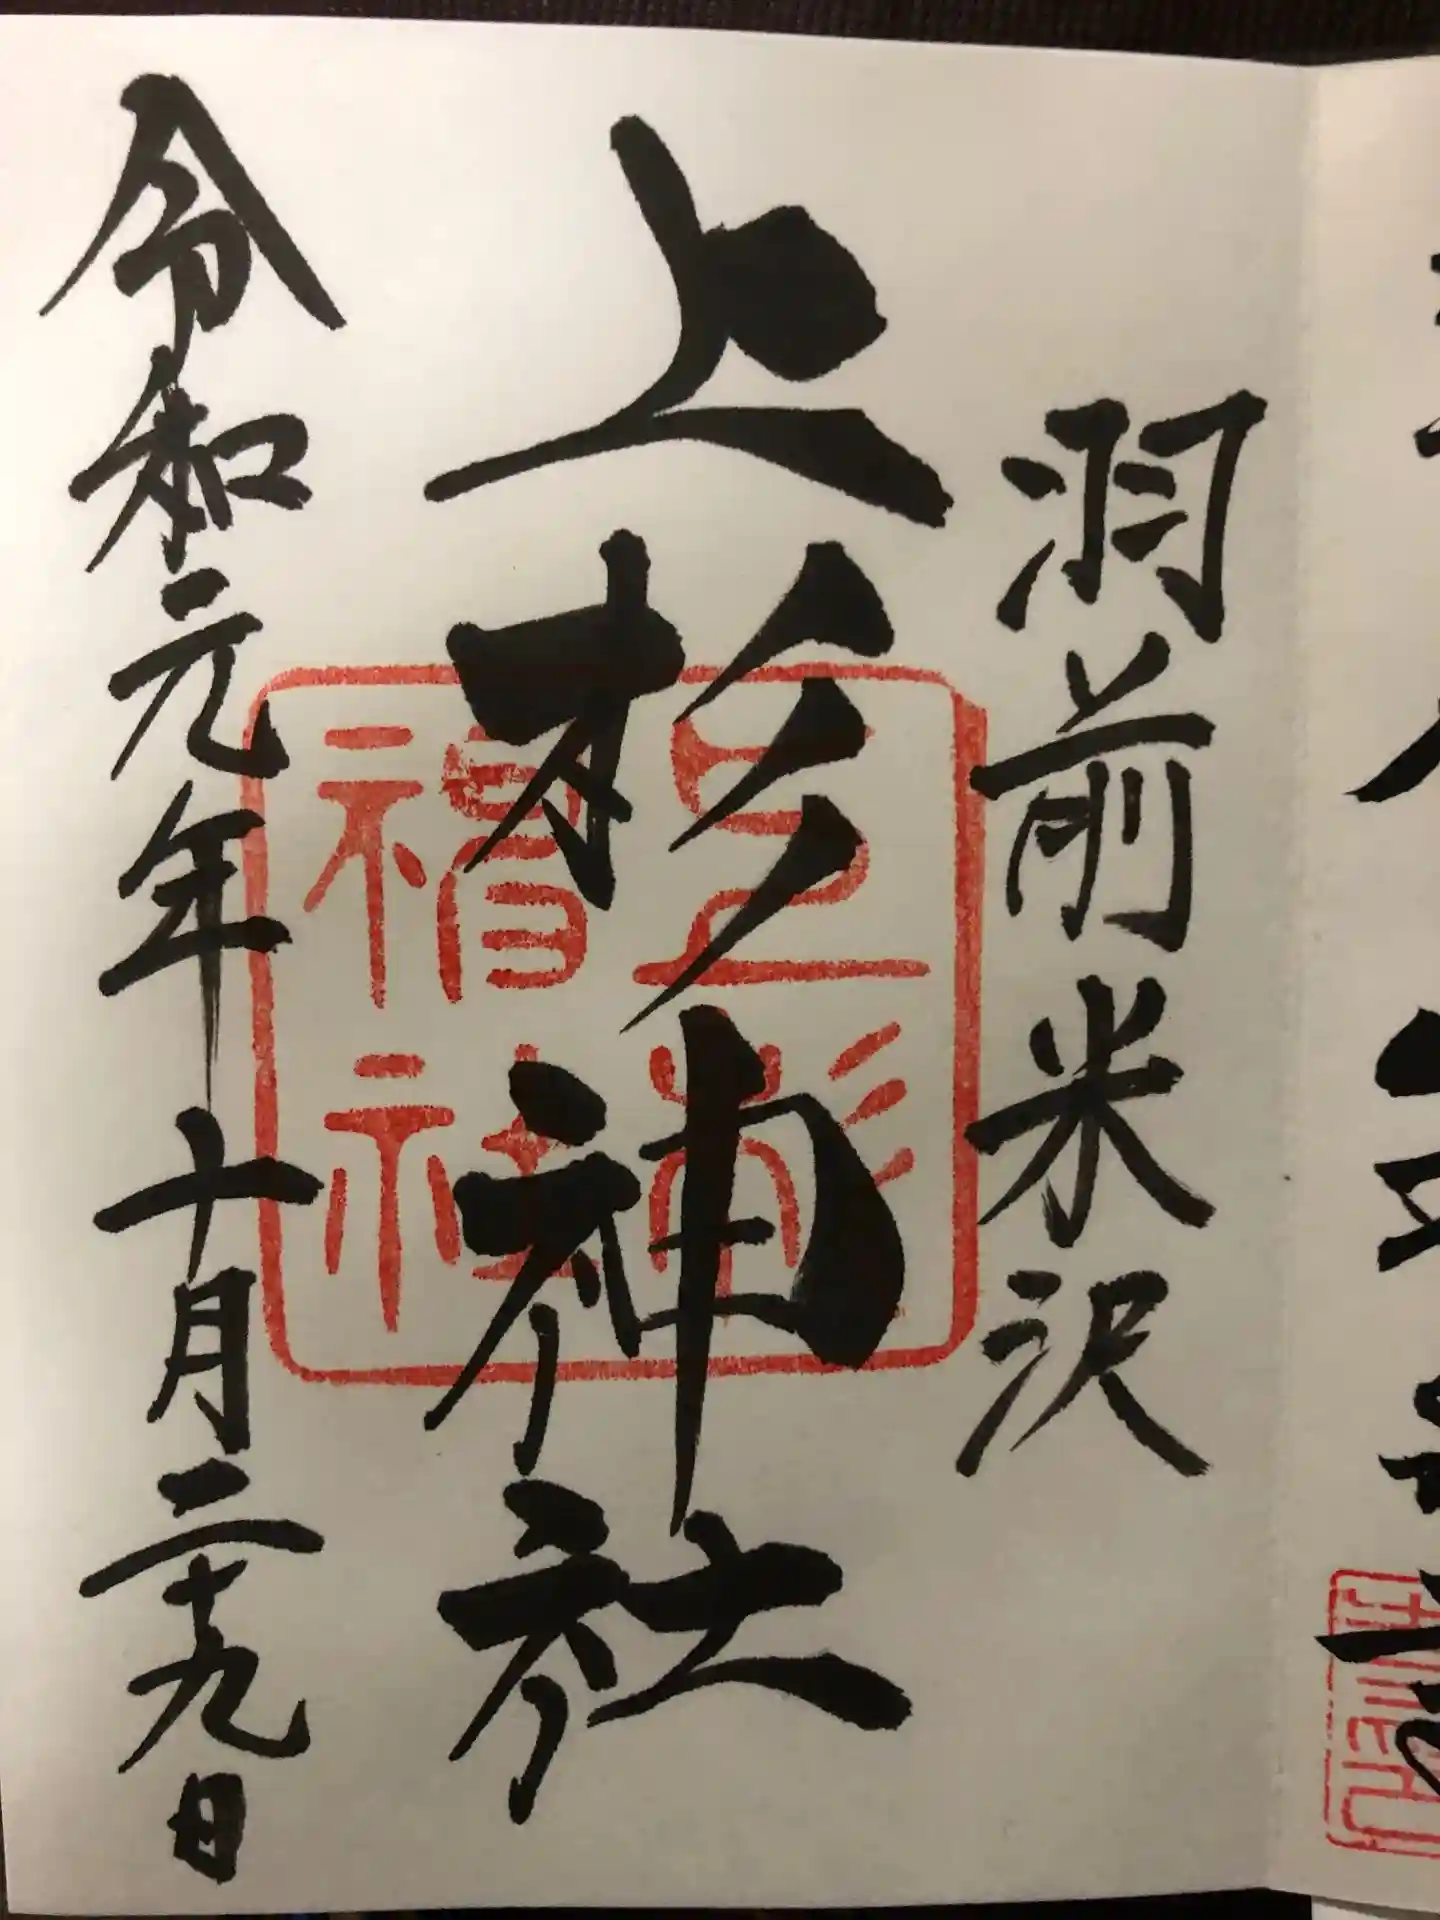 羽前米沢
上杉神社
令和元年十月二十九日